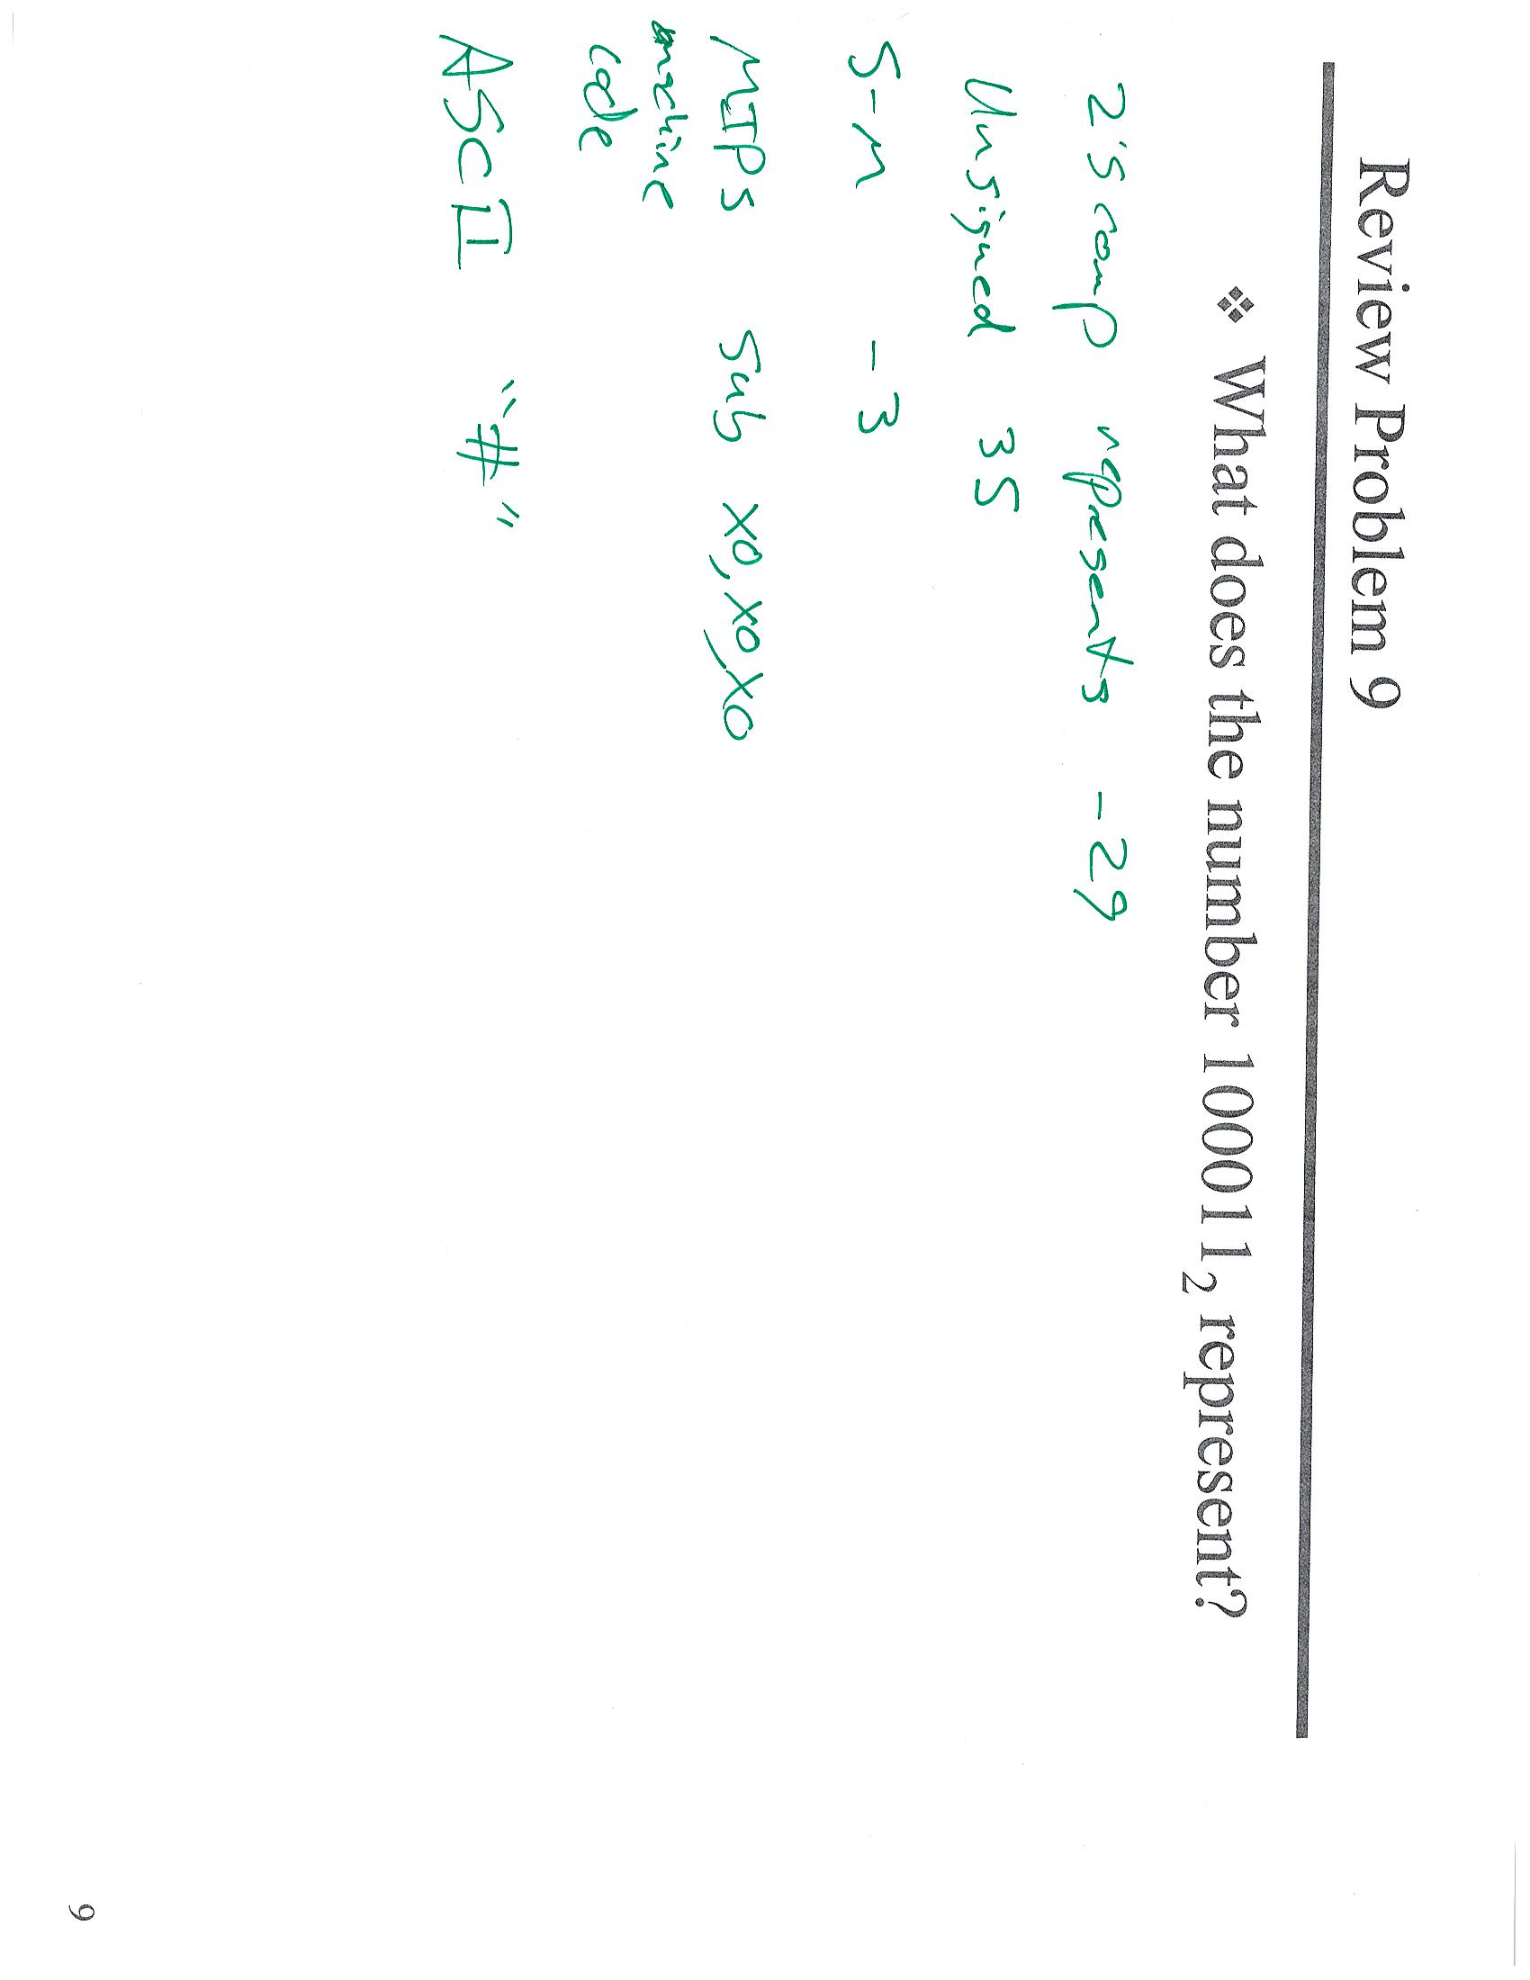 Review Problem 9
❖ What does the number 100011₂ represent?
2's comp represents -29
Unsigned 35
S-M -3
MIPS sub x0, x0, x0
machine
code
ASCII "#"
9